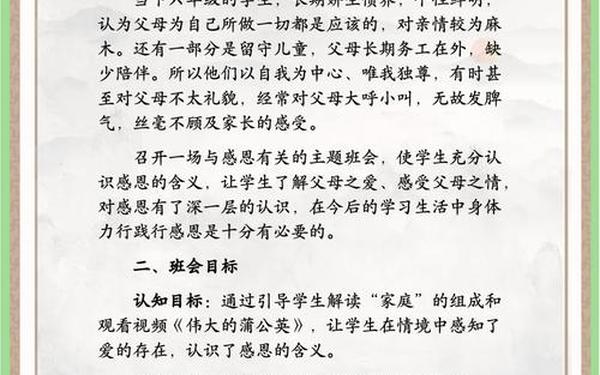 当下六年级的学生，长期娇生惯养，个性鲜明，
认为父母为自己所做一切都是应该的，对亲情较为麻
木。还有一部分是留守儿童，父母长期务工在外，缺
少陪伴。所以他们以自我为中心、唯我独尊，有时甚
至对父母不太礼貌，经常对父母大呼小叫，无故发脾
气，丝毫不顾及家长的感受。
召开一场与感恩有关的主题班会，使学生充分认
识感恩的含义，让学生了解父母之爱、感受父母之情，
对感恩有了深一层的认识，在今后的学习生活中身体
力行践行感恩是十分有必要的。
二、班会目标
认知目标：通过引导学生解读“家庭”的组成和
观看视频《伟大的蒲公英》，让学生在情境中感知了
爱的存在，认识了感恩的含义。